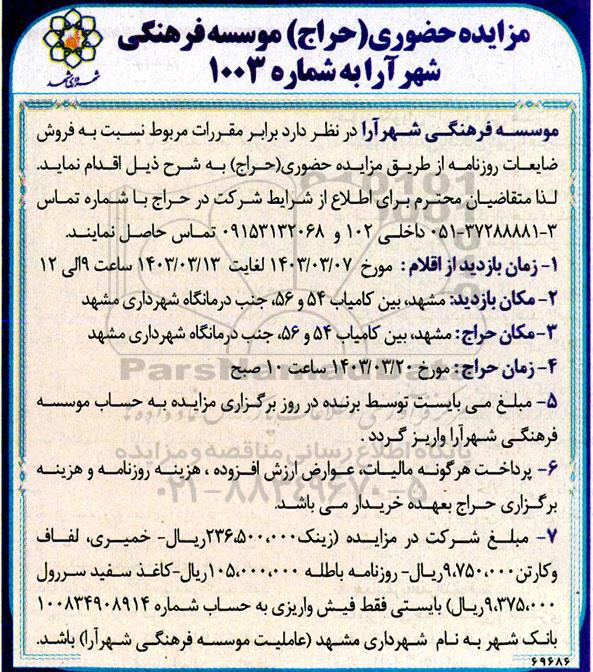 مزایده حضوری(حراج) موسسه فرهنگی
شهرآرا به شماره ۱۰۰۳
موسسه فرهنگی شهرآرا در نظر دارد برابر مقررات مربوط نسبت به فروش
ضایعات روزنامه از طریق مزایده حضوری(حراج) به شرح ذیل اقدام نماید.
لذا متقاضیان محترم برای اطلاع از شرایط شرکت در حراج با شماره تماس
۳-۳۷۲۸۸۸۸۱-۰۵۱ داخلی ۱۰۲ و ۰۹۱۵۳۱۳۲۰۶۸ تماس حاصل نمایند.
۱- زمان بازدید از اقلام : مورخ ۱۴۰۳/۰۳/۰۷ لغایت ۱۴۰۳/۰۳/۱۳ ساعت ۹الی ۱۲
۲- مکان بازدید: مشهد، بین کامیاب ۵۴ و ۵۶، جنب درمانگاه شهرداری مشهد
۳-مکان حراج: مشهد، بین کامیاب ۵۴ و ۵۶، جنب درمانگاه شهرداری مشهد
۴- زمان حراج: مورخ ۱۴۰۳/۰۳/۲۰ ساعت ۱۰ صبح
ParsNamadData
۵- مبلغ می بایست توسط برنده در روز برگزاری مزایده به حساب موسسه
فرهنگی شهرآرا واریز گردد .
پایگاه اطلاع رسانی مناقصه و مزایده
۶- پرداخت هرگونه مالیات، عوارض ارزش افزوده ، هزینه روزنامه و هزینه
برگزاری حراج بعهده خریدار می باشد.
۰۲۱-۸۸۳۴۹۶۷۰-۵
۷- مبلغ شرکت در مزایده (زینک۲۳۶،۵۰۰،۰۰۰ریال- خمیری، لفاف
وکارتن۹،۷۵۰،۰۰۰ریال- روزنامه باطله ۱۰۵،۰۰۰،۰۰۰ریال-کاغذ سفید سررول
۹،۳۷۵،۰۰۰ریال) بایستی فقط فیش واریزی به حساب شماره ۱۰۰۸۳۴۹۰۸۹۱۴
بانک شهر به نام شهرداری مشهد (عاملیت موسسه فرهنگی شهرآرا) باشد.
۶۹۶۸۶